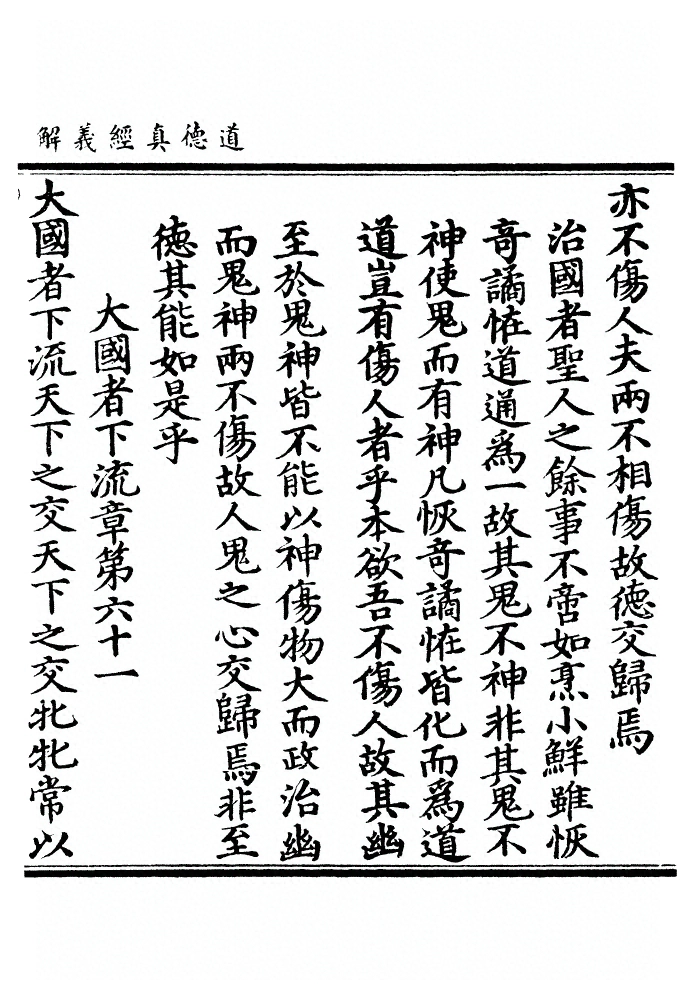 道德真經義解
亦不傷人夫兩不相傷故德交歸焉
治國者聖人之餘事不啻如烹小鮮雖恢
奇譎恠道通爲一故其鬼不神非其鬼不
神使鬼而有神凡恢奇譎恠皆化而爲道
道豈有傷人者乎本欲吾不傷人故其幽
至於鬼神皆不能以神傷物大而政治幽
而鬼神兩不傷故人鬼之心交歸焉非至
德其能如是乎
大國者下流章第六十一
大國者下流天下之交天下之交牝牝常以